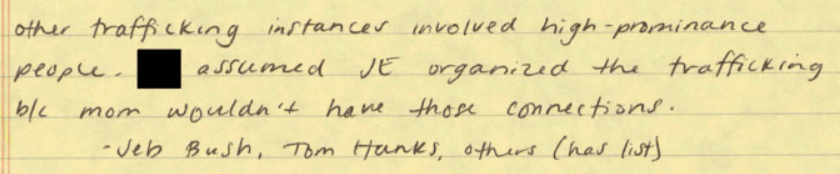 other trafficking instances involved high-prominance
people. assumed JE organized the trafficking
b/c mom wouldn't have those connections.
-Jeb Bush, Tom Hanks, others (has list)